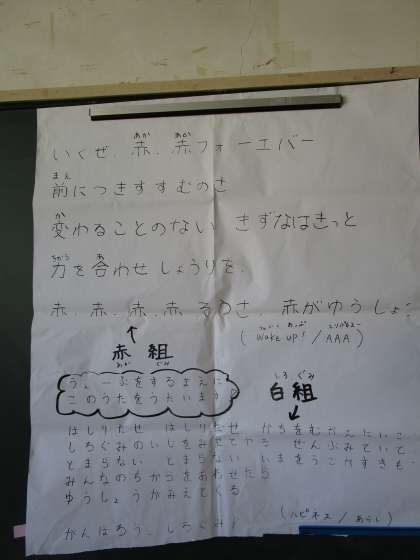 いくぜ、赤、赤フォーエバー
前につきすすむのさ
変わることのない きずなはきっと
力を合わせしょうりを、
赤、赤、赤、赤 るのさ、赤がゆうしょう
(Wake up! / AAA)
赤組
うぇーぶをするまえに
このうたをうたいます
白組
はしりだせ はしりだせ かちをむかえにいこ
しろぐみのいじをみせてやる ぜんぶみていて
とまらない とまらない いまをうごかすきも
みんなのちからをあわせたら
ゆうしょうがみえてくる
がんばろう、しろぐみ!
(ハピネス / あらし)